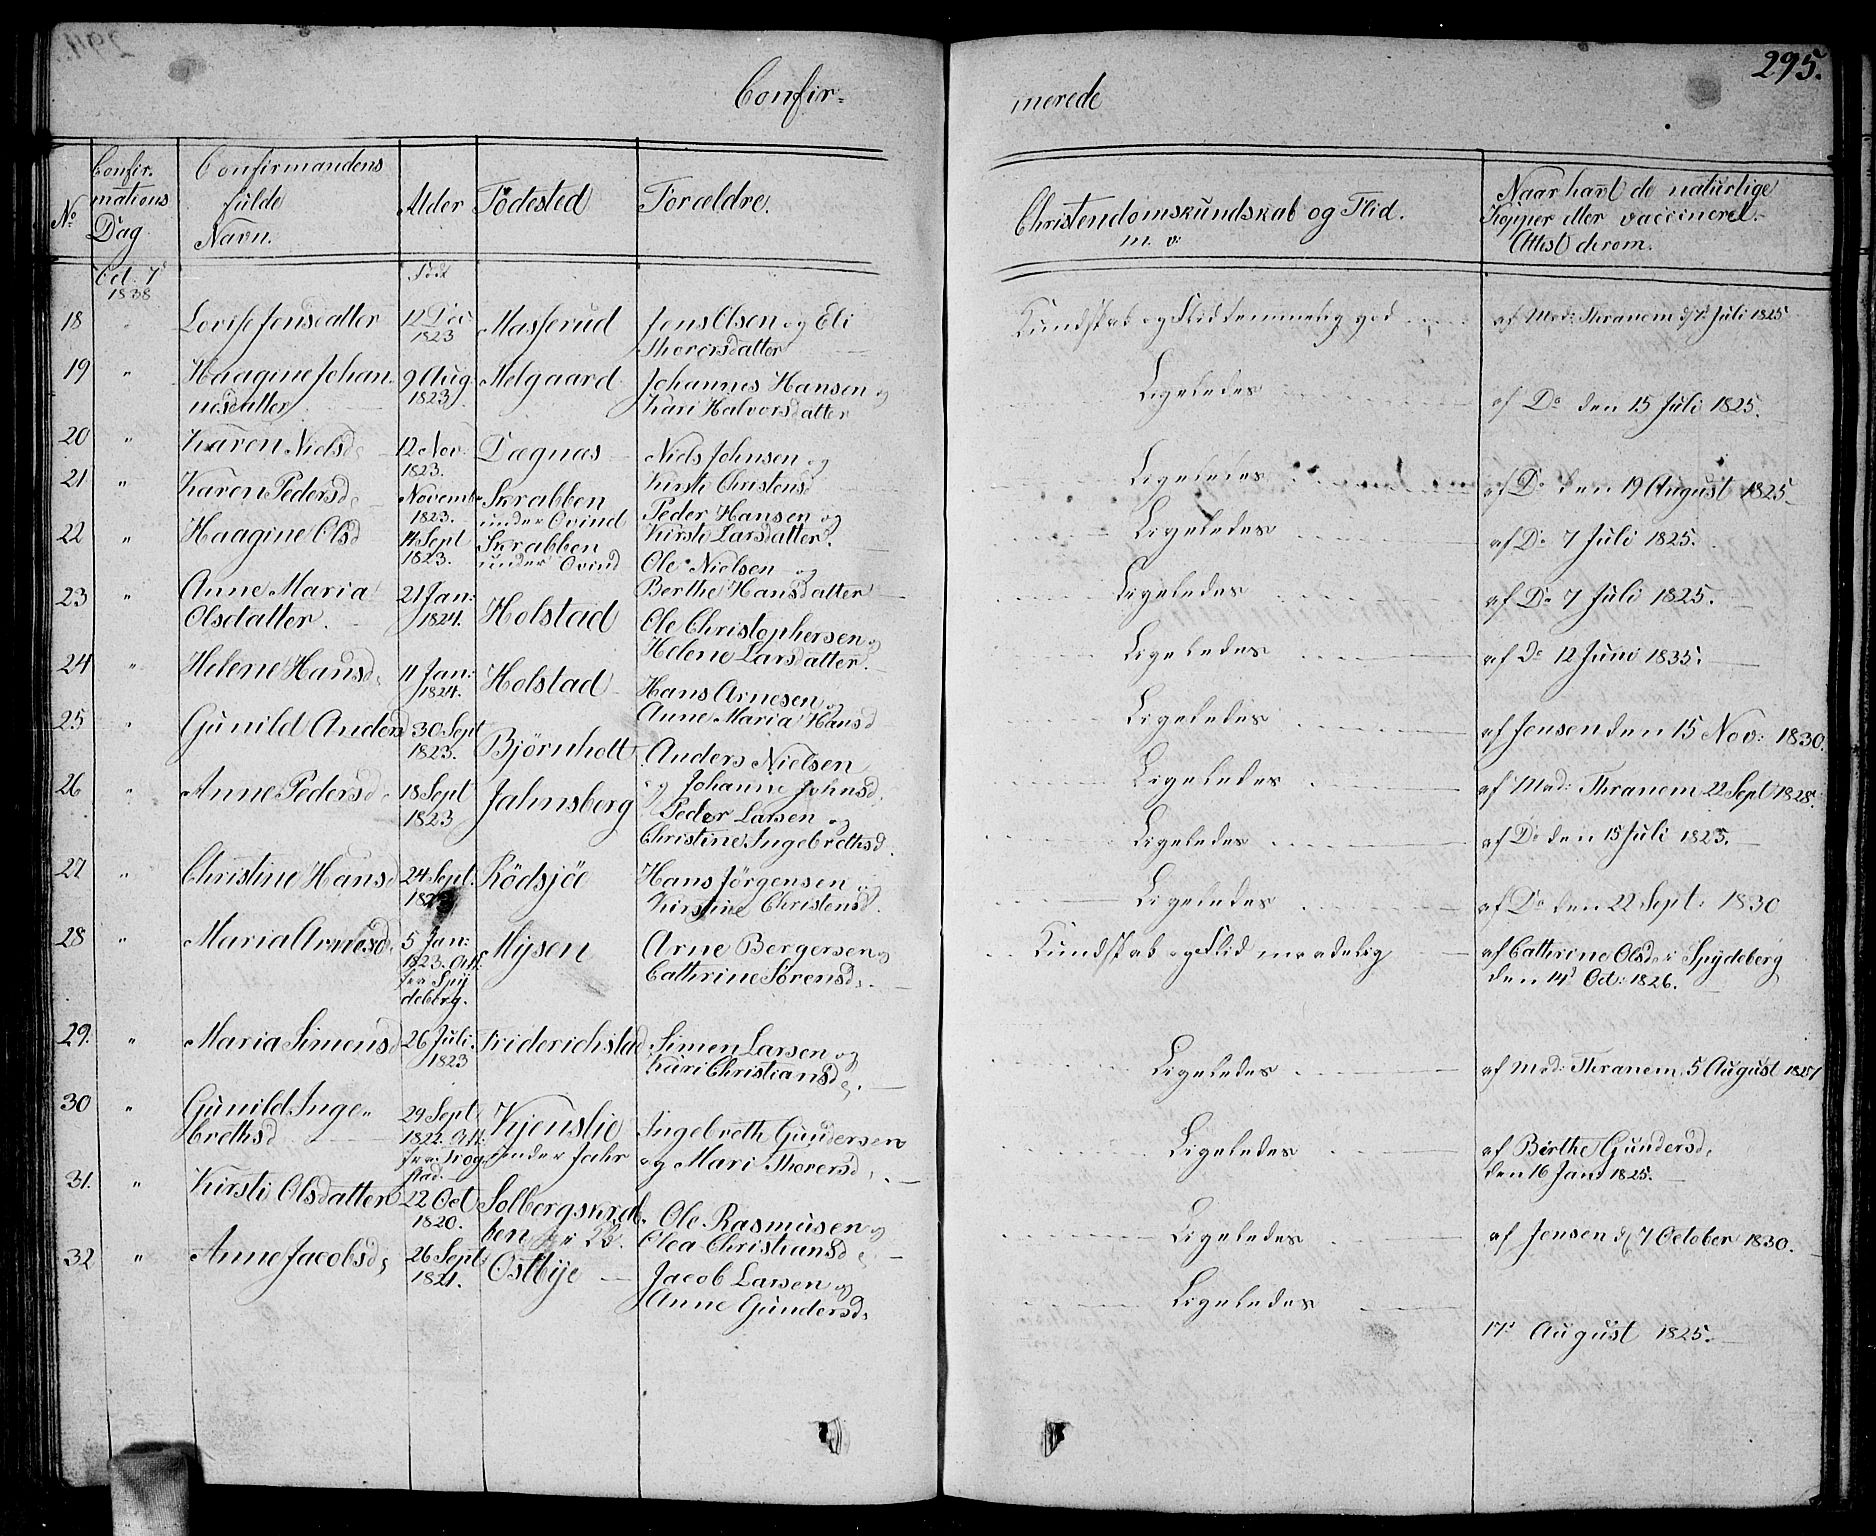 295.
Confir-
merede
No
Confir-
mations
Dag
Confirmandens
fulde
Navn.
Alder
Födested
Forældre.
Christendomskundskab og Flid.
m. v:
Naar havt de naturlige
Kopper eller vaccineret.
Attest derom.
Oct. 7d
1838
Föd
18 " Lovise Jensdatter 12 Dec 1823 Masserud Jens Olsen og Eli
Thorersdatter
Kundskab og Flid temmelig god af Mad: Thranem d/ 7 Juli 1825
19 " Haagine Johan-
nesdatter 9 Aug. 1823 Melgaard Johannes Hansen og
Kari Halvorsdatter
Ligeledes af Do den 15 Juli 1825.
20 " Karen Nielsd. 12 Nov. 1823. Dægnæs Niels Johnsen og
Kirsti Christensd
Ligeledes af Do den 19 August 1825
21 " Karen Pedersd. Novemb. 1823. Skrabben
under Ovind Peder Hansen og
Kirsti Larsdatter.
Ligeledes af Do 7 Juli 1825.
22 " Haagine Olsd 14 Sept 1823. Skrabben
under Ovind Ole Nielsen og
Berthe Hansdatter
Ligeledes af Do 7 Juli 1825.
23 " Anne Maria
Olsdatter. 21 Jan: 1824. Holstad Ole Christophersen og
Helene Larsdatter.
Ligeledes af Do 12 Juni 1835.
24 " Helene Hansd. 11 Jan: 1824. Holstad Hans Arnesen og
Anne Maria Hansd
Ligeledes af Jensen den 15 Nov: 1830.
25 " Gunild Andersd 30 Sept 1823. Björnholt Anders Nielsen
og Johanne Johnsd.
Ligeledes af Mad: Thranem 22 Sept 1828.
26 " Anne Pedersd. 18 Sept 1823 Jahnsberg Peder Larsen og
Christine Ingebrethsd.
Ligeledes af Do den 15 Juli 1825.
27 " Christine Hansd 24 Sept. Rödsjöe Hans Jörgensen og
Kirstine Christensd.
Ligeledes af Do den 22 Sept: 1830
28 " Maria Arnesd. 5 Jan: 1823. Att.
fra Spy
deberg. Mysen Arne Bergersen og
Cathrine Sörensd.
Kundskab og Flid maadelig af Cathrine Olsd. i Spydeberg
den 14d Oct: 1826.
29. " Maria Simensd 26 Juli. 1823 Friderichstad Simen Larsen og
Kari Christiansd.
Ligeledes af Mad: Thranem 5 August 1827
30 " Gunild Inge-
brethsd 29 Sept 1822. Att:
fra Trog-
stad. Kjenslie
under Jahr Ingebreth Gundersen
og Mari Thorersd.
Ligeledes af Birthe Gundersd.
den 16 Jani 1825.
31. " Kirsti Olsdatter 22 Oct 1820. Solbergskrab-
ben Ole Rasmusen og
Olea Christiansd.
Ligeledes af Jensen d/ 7 October 1830.
32 " Anne Jacobsd. 26 Sept. 1821. Ostbye Jacob Larsen og
Anne Gundersd.
Ligeledes 17d August 1825.